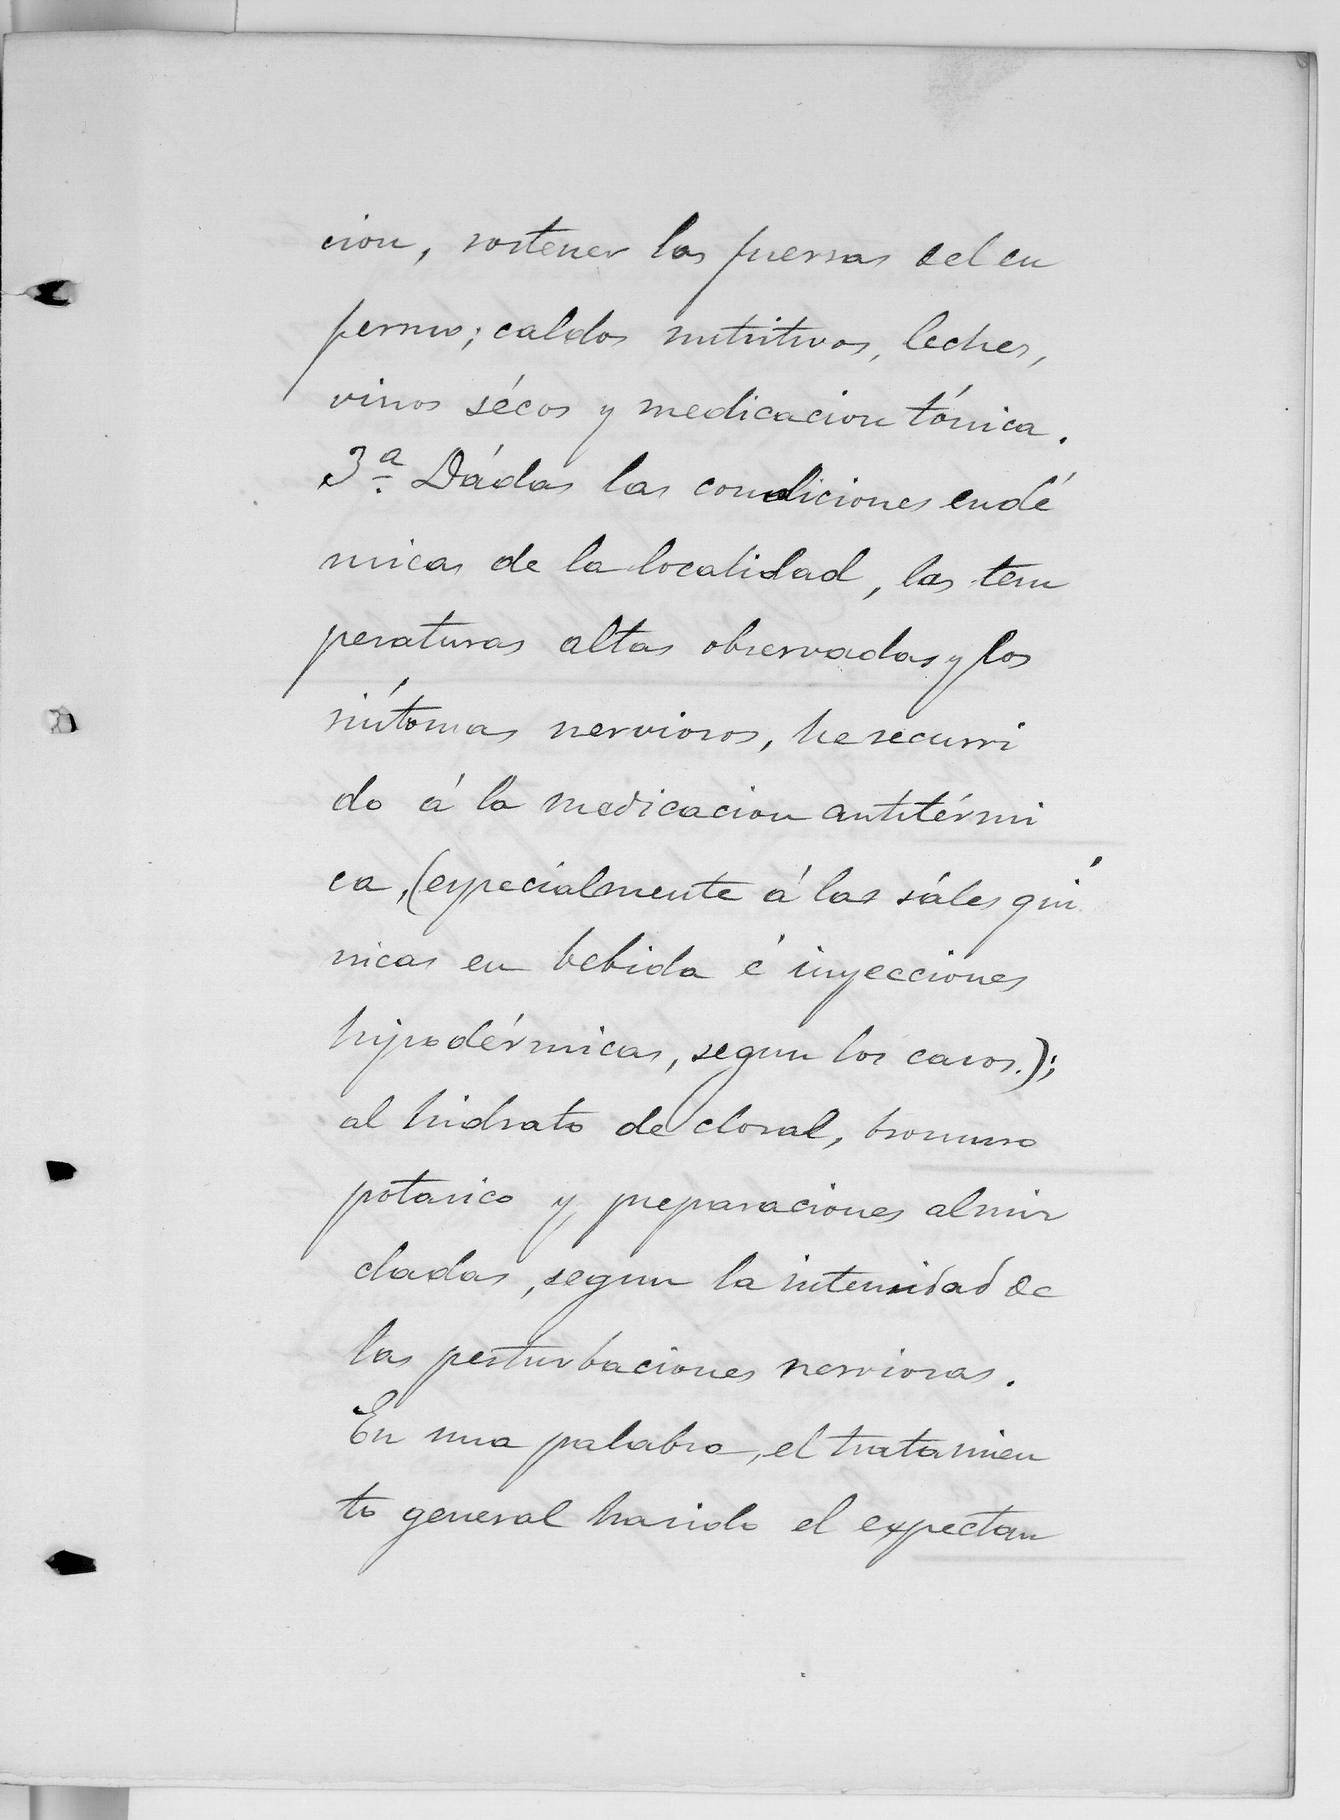 cion, sostener las fuersas del en
fermo; caldos nutritivos, leches,
vinos sécos y medicacion tónica.
3ª Dádas las condiciones endé
micas de la localidad, las tem
peraturas altas observadas y los
síntomas nerviosos, he recurri
do á la medicacion antitérmi
ca, (especialmente á las sáles quí
nicas en bebida é inyecciones
hipodérmicas, segun los casos.);
al hidrato de cloral, bromuro
potasico y preparaciones almiz
cladas, segun la intensidad de
las perturbaciones nerviosas.
En una palabra, el tratamien
to general ha sido el expectan